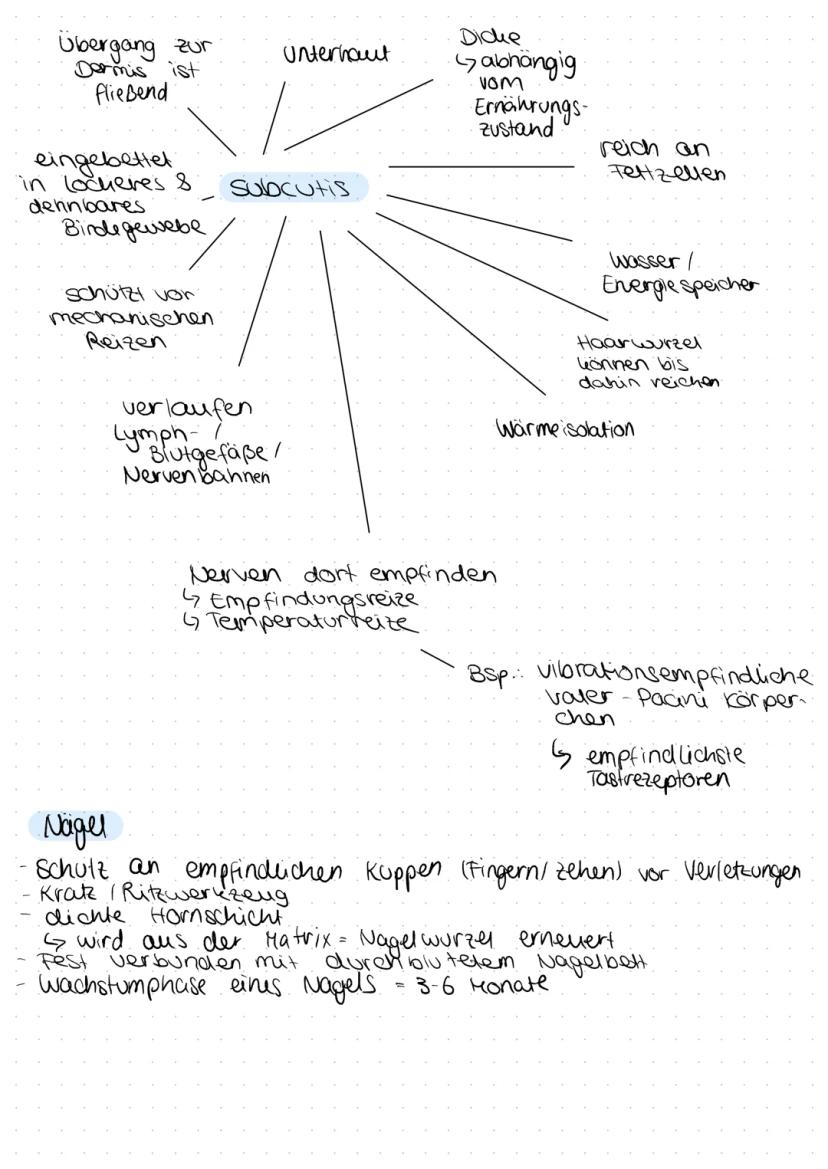 Übergang zur
Dermis ist
fließend
Unterhaut
Dicke
↳ abhängig
vom
Ernährungs-
zustand
reich an
Fettzellen
eingebettet
in lockeres &
dehnbares
Bindegewebe
Subcutis
Wasser /
Energiespeicher
schützt vor
mechanischen
Reizen
Haarwurzel
können bis
dahin reichen
verlaufen
Lymph- /
Blutgefäße /
Nervenbahnen
Wärmeisolation
Nerven dort empfinden
↳ Empfindungsreize
↳ Temperaturreize
Bsp.: vibrationsempfindliche
Vater - Pacini Körper-
chen
↳ empfindlichste
Tastrezeptoren
Nägel
- Schutz an empfindlichen Kuppen (Fingern/ Zehen) vor Verletzungen
- Kratz / Ritzwerkzeug
- dichte Hornschicht
↳ wird aus der Matrix = Nagelwurzel erneuert
- Fest verbunden mit durchblutetem Nagelbett
- Wachstumphase eines Nagels = 3-6 Monate